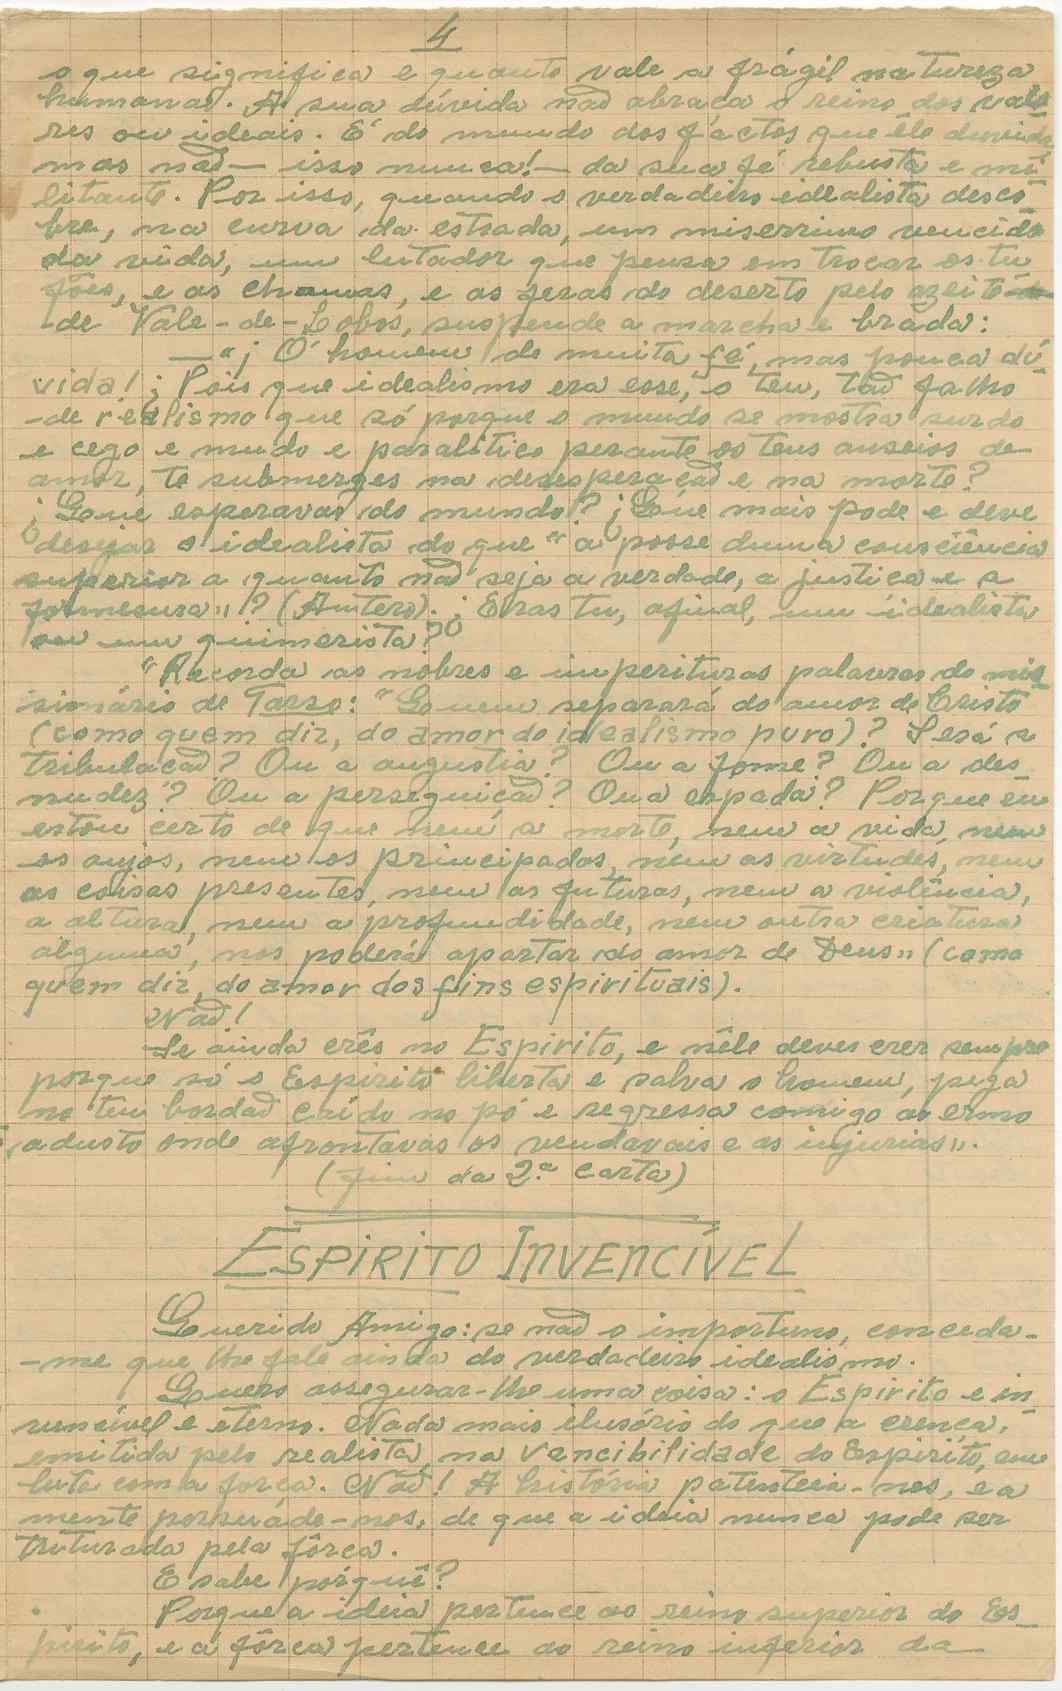 4
o que significa e quanto vale a frágil natureza
humana. A sua dúvida não abraça o reino dos valo
res ou ideais. É do mundo dos factos que êle duvida,
mas não — isso nunca! — da sua fé robusta e mi-
litante. Por isso, quando o verdadeiro idealista desco-
bre, na curva da estrada, um miserrimo vencido
da vida, um lutador que pensa em trocar os tu
fões, e as chamas, e as feras do deserto pelo azeite
-de Vale-de-Lobos, suspende a marcha e brada:
—"¡ Ó homem de muita fé, mas pouca dú-
vida! ¿ Pois que idealismo era esse, o teu, tão falho
-de realismo que só porque o mundo se mostra surdo
e cego e mudo e paralítico perante os teus anseios de
amor, te submerges na desesperação e na morte?
¿ Que esperavas do mundo? ¿ Que mais pode e deve
desejar o idealista do que "a posse duma consciência
superior a quanto não seja a verdade, a justiça e a
formosura"? (Antero). ¿ Eras tu, afinal, um idealista
ou um quimerista?
"Recorda as nobres e imperituras palavras do mis
sionário de Tarso: "Quem separará do amor de Cristo
(como quem diz, do amor do idealismo puro)? Será a
tribulação? Ou a angustia? Ou a fome? Ou a des-
nudez? Ou a perseguição? Ou a espada? Porque eu
estou certo de que nem a morte, nem a vida, nem
os anjos, nem os principados, nem as virtudes, nem
as coisas presentes, nem as futuras, nem a violência,
a altura, nem a profundidade, nem outra criatura
alguma, nos poderá apartar do amor de Deus" (como
quem diz, do amor dos fins espirituais).
Não!
Se ainda crês no Espirito, e nêle deves crer sempre
porque só o Espirito liberta e salva o homem, pega
no teu bordão caído no pó e regressa comigo ao ermo
adusto onde afrontavas os vendavais e as injurias".
(fim da 2.ª carta)
ESPIRITO INVENCÍVEL
Querido Amigo: se não o importuno, conceda-
-me que lhe fale ainda do verdadeiro idealismo.
Quero assegurar-lhe uma coisa: o Espirito e in-
vencível e eterno. Nada mais ilusório do que a crença,
emitida pelo realista, na vencibilidade do Espirito, em
luta com a força. Não! A história patenteia-nos, e a
mente persuáde-nos, de que a ideia nunca pode ser
triturada pela fôrça.
E sabe pórquê?
Porque a ideia pertence ao reino superior do Es-
pirito, e a fôrça pertence ao reino inferior da